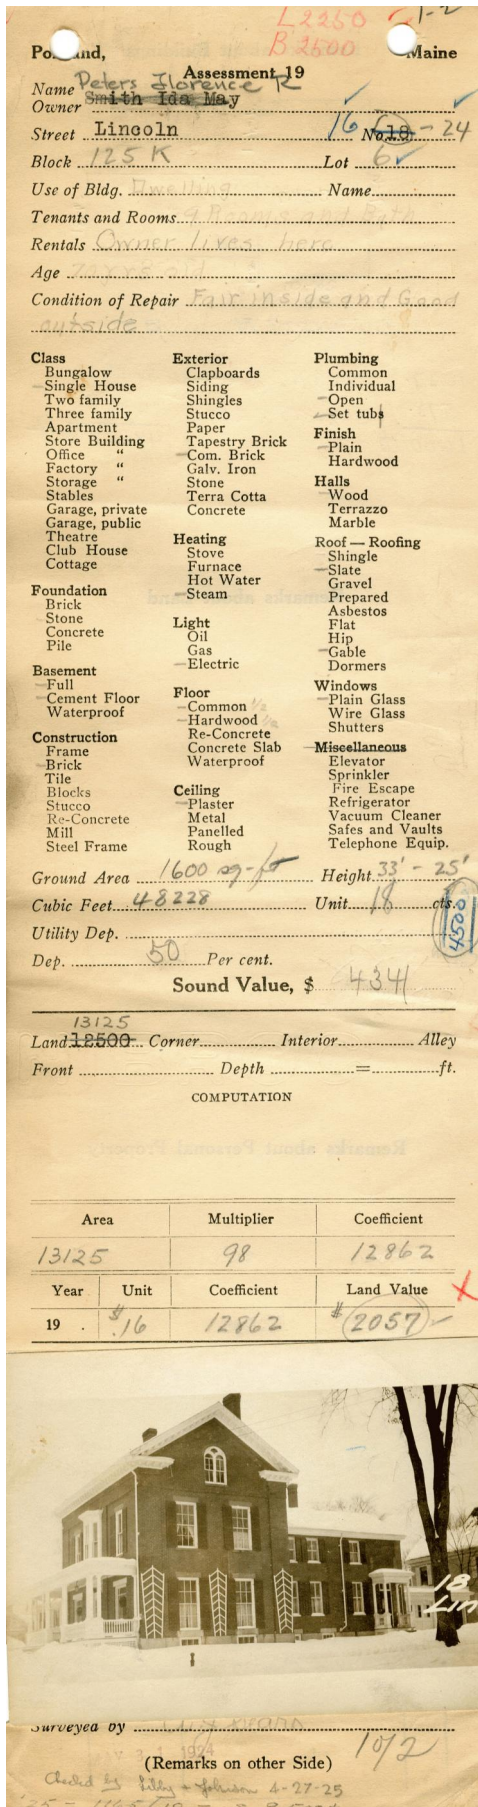 L 2250
B 2500
1-2
Portland, Maine
Assessment 19
Peters Florence R
Name Smith Ida May
Owner
Street Lincoln 16 No. 18 - 24
Block 125 K Lot 6
Use of Bldg. Dwelling Name
Tenants and Rooms 9 Rooms and Bath
Rentals Owner lives here
Age 70 yrs old
Condition of Repair Fair inside and Good
outside
Class
Bungalow
Single House
Two family
Three family
Apartment
Store Building
Office "
Factory "
Storage "
Stables
Garage, private
Garage, public
Theatre
Club House
Cottage
Foundation
Brick
Stone
Concrete
Pile
Basement
Full
Cement Floor
Waterproof
Construction
Frame
Brick
Tile
Blocks
Stucco
Re-Concrete
Mill
Steel Frame
Exterior
Clapboards
Siding
Shingles
Stucco
Paper
Tapestry Brick
Com. Brick
Galv. Iron
Stone
Terra Cotta
Concrete
Heating
Stove
Furnace
Hot Water
Steam
Light
Oil
Gas
Electric
Floor
Common 1/2
Hardwood 1/2
Re-Concrete
Concrete Slab
Waterproof
Ceiling
Plaster
Metal
Panelled
Rough
Plumbing
Common
Individual
Open
Set tubs
Finish
Plain
Hardwood
Halls
Wood
Terrazzo
Marble
Roof — Roofing
Shingle
Slate
Gravel
Prepared
Asbestos
Flat
Hip
Gable
Dormers
Windows
Plain Glass
Wire Glass
Shutters
Miscellaneous
Elevator
Sprinkler
Fire Escape
Refrigerator
Vacuum Cleaner
Safes and Vaults
Telephone Equip.
Ground Area 1600 sq-ft Height 33' - 25'
Cubic Feet 48228 Unit 18 cts.
4500
Utility Dep.
Dep. 50 Per cent.
Sound Value, $ 4341
13125
Land 12500 Corner Interior Alley
Front Depth = ft.
COMPUTATION
Area Multiplier Coefficient
13125 98 12862
Year Unit Coefficient Land Value
19 . $.16 12862 $2057
18
Lin
Surveyed by
1924
10/2
(Remarks on other Side)
Checked by Libby + Johnson 4-27-25